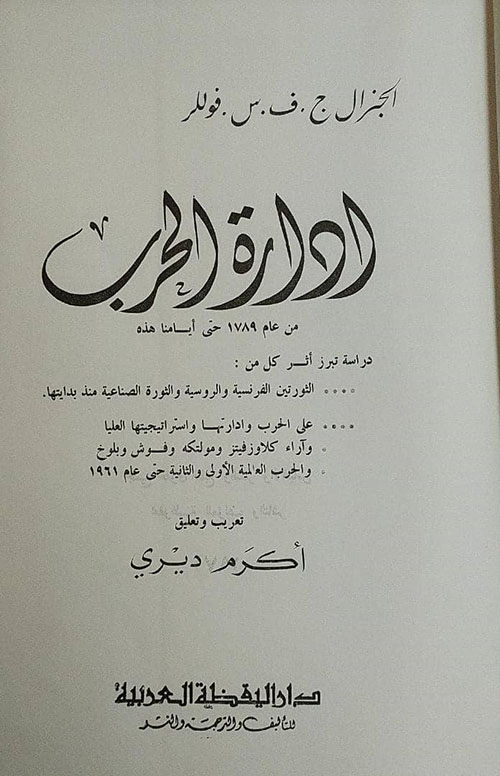 الجنرال ج. ف. س. فوللر
ادارة الحرب
من عام ١٧٨٩ حتى أيامنا هذه
دراسة تبرز أثر كل من :
الثورتين الفرنسية والروسية والثورة الصناعية منذ بدايتها.
على الحرب وادارتها واستراتيجيتها العليا
وآراء كلاوزفيتز ومولتكه وفوش وبلوخ
والحرب العالمية الأولى والثانية حتى عام ١٩٦١
تعريب وتعليق
أكرَم ديْري
دار اليقظة العربية
للتأليف والترجمة والنشر